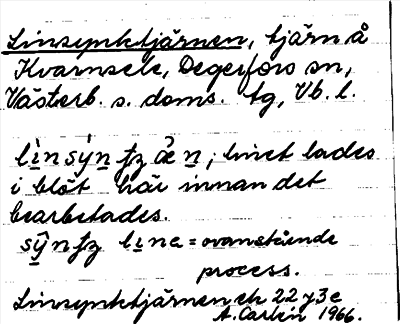 Linsynktjärnen, tjärn å
Kvarnsele, Degerfors sn,
Västerb. s. doms. tg, Vb. l.
lìnsýnʈʂæ̀n; linet lades
i blöt här innan det
bearbetades.
sŷnʈʂ line = ovanstående
process.
Linsynktjärnen ek 22 y 3 e
A. Carlén 1966.